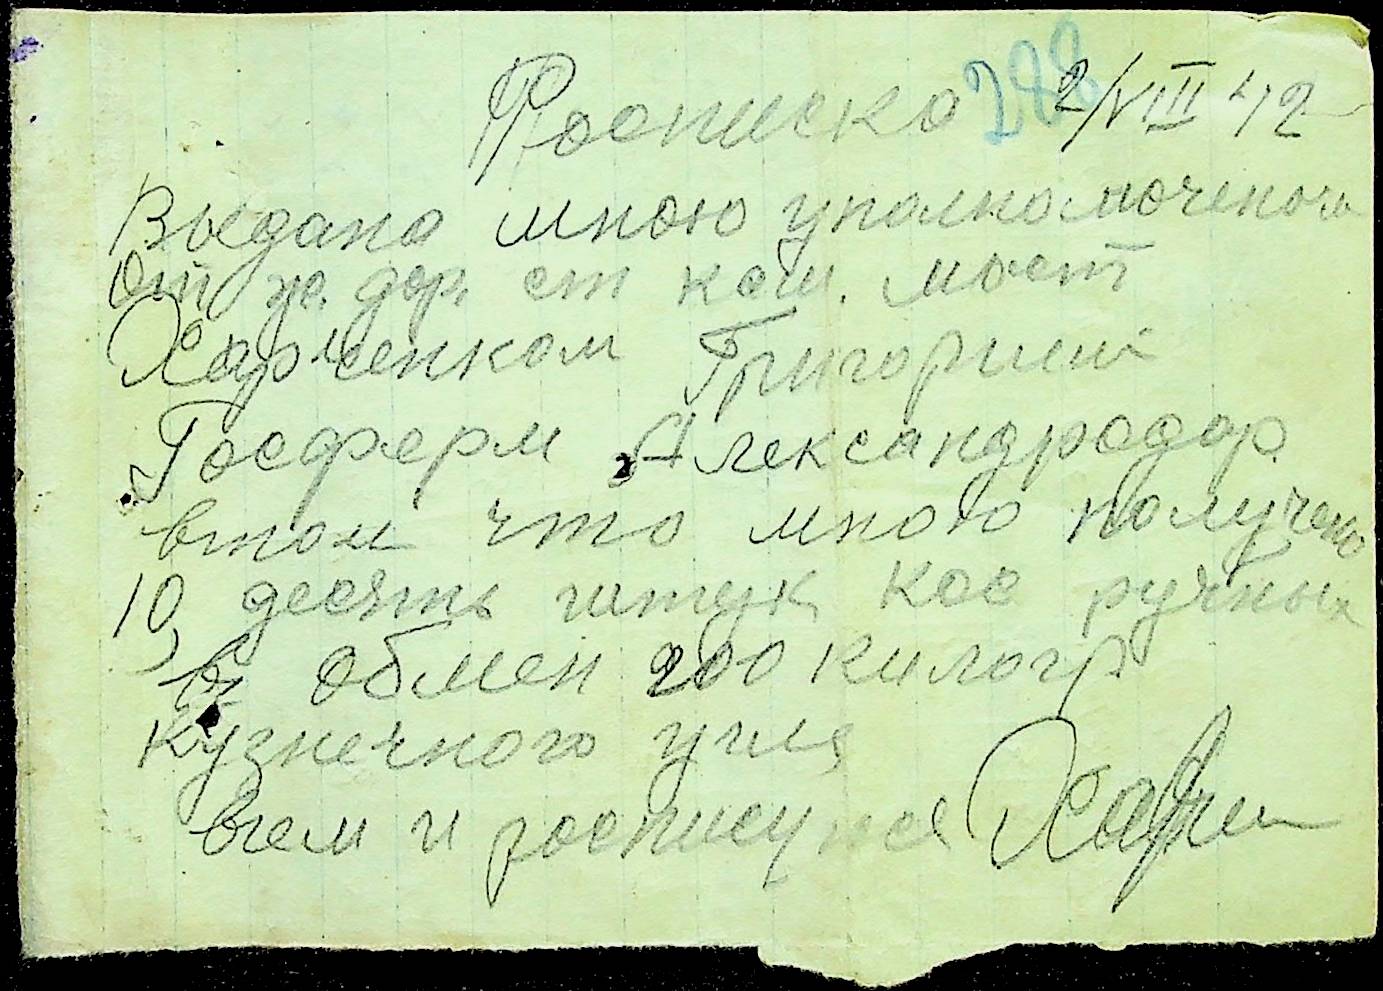 Росписка 288 2/VIII 42
Выдана мною уполномоченого
От ж. дор. ст каш. мост
Харченком Григорием
Госферм Александродар
втом что мною получено
10 десять штук кос ручных
в обмен 200 килогр
кузнечного угля
вчем и росписуюся Харчен